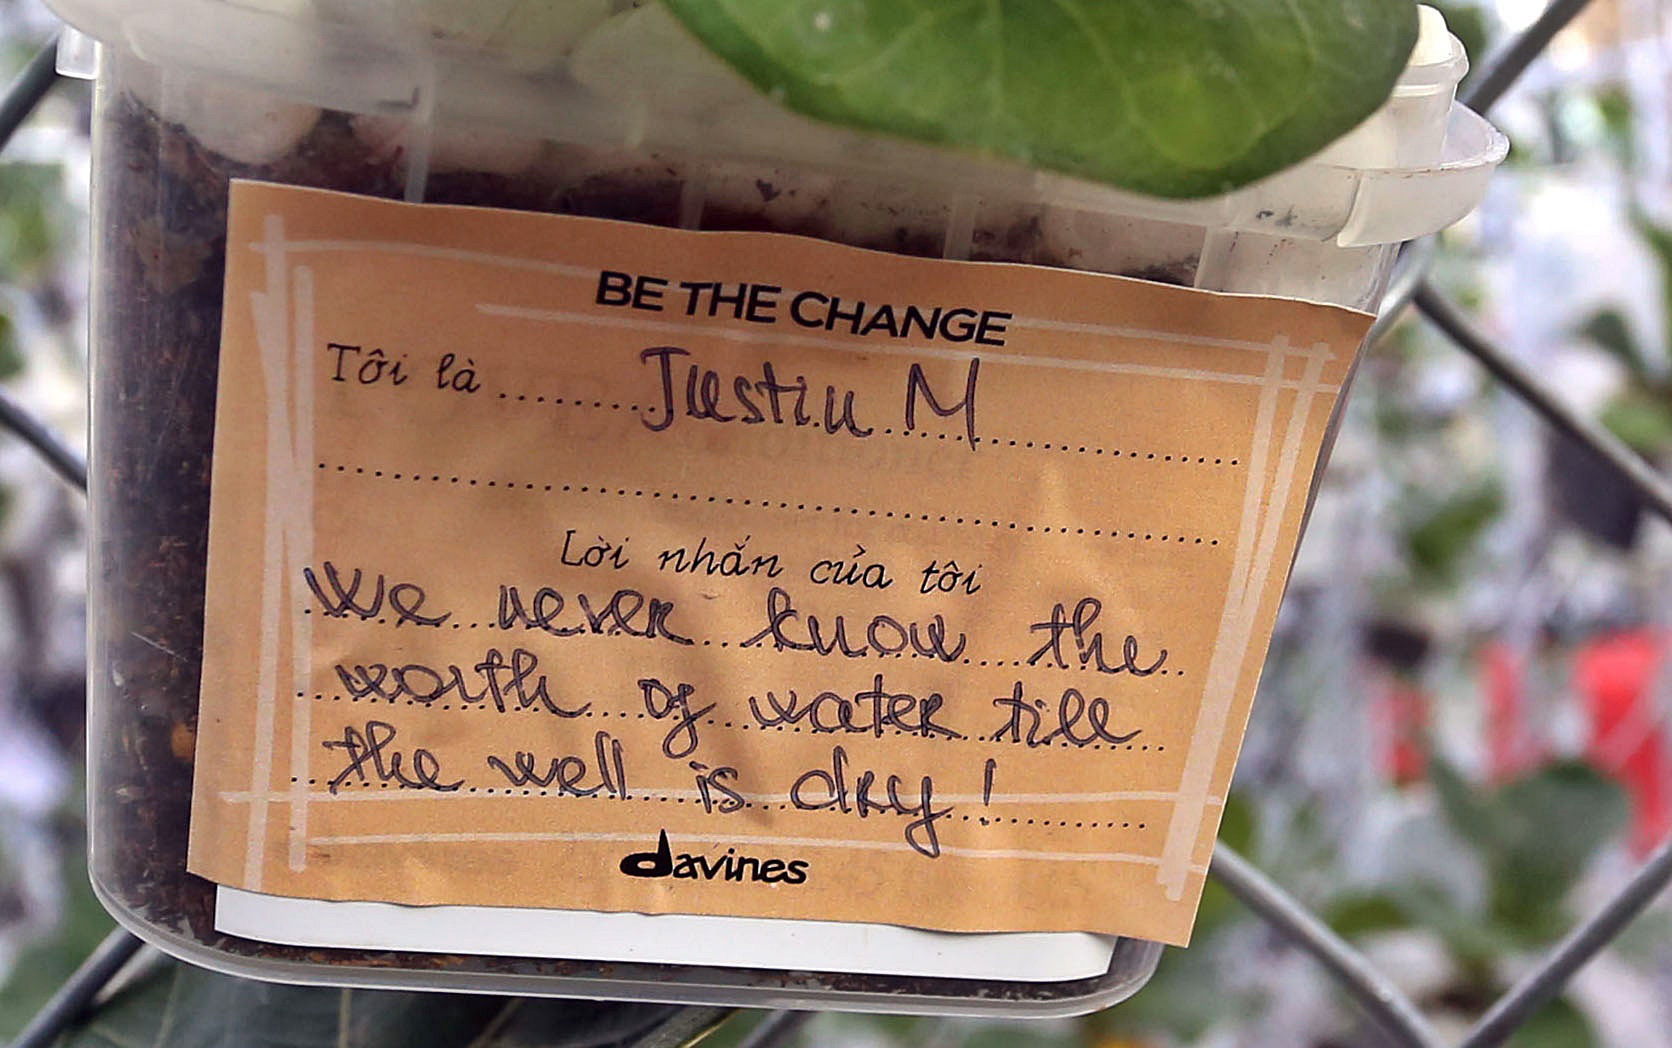 BE THE CHANGE
Tôi là ........ Justin M
Lời nhắn của tôi
We never know the
worth of water till
the well is dry!
davines